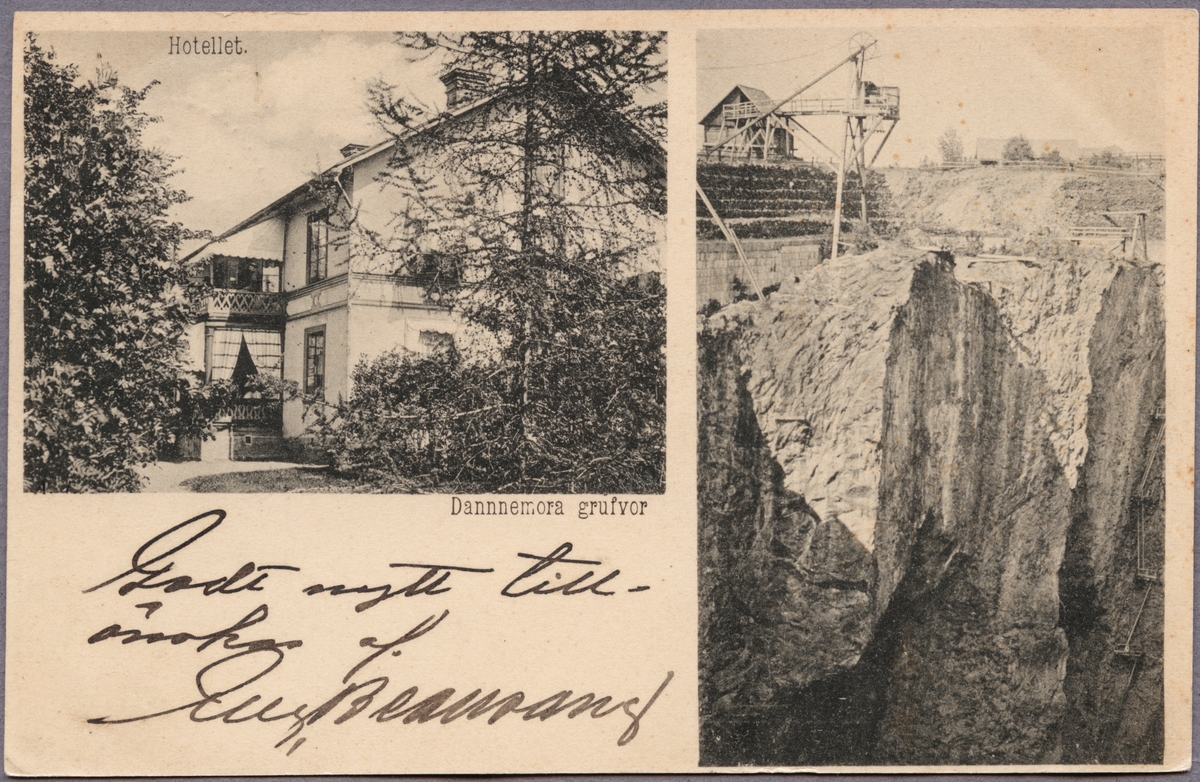 Hotellet.
Dannnemora grufvor
Godt nytt till-
önskas af
Eug.